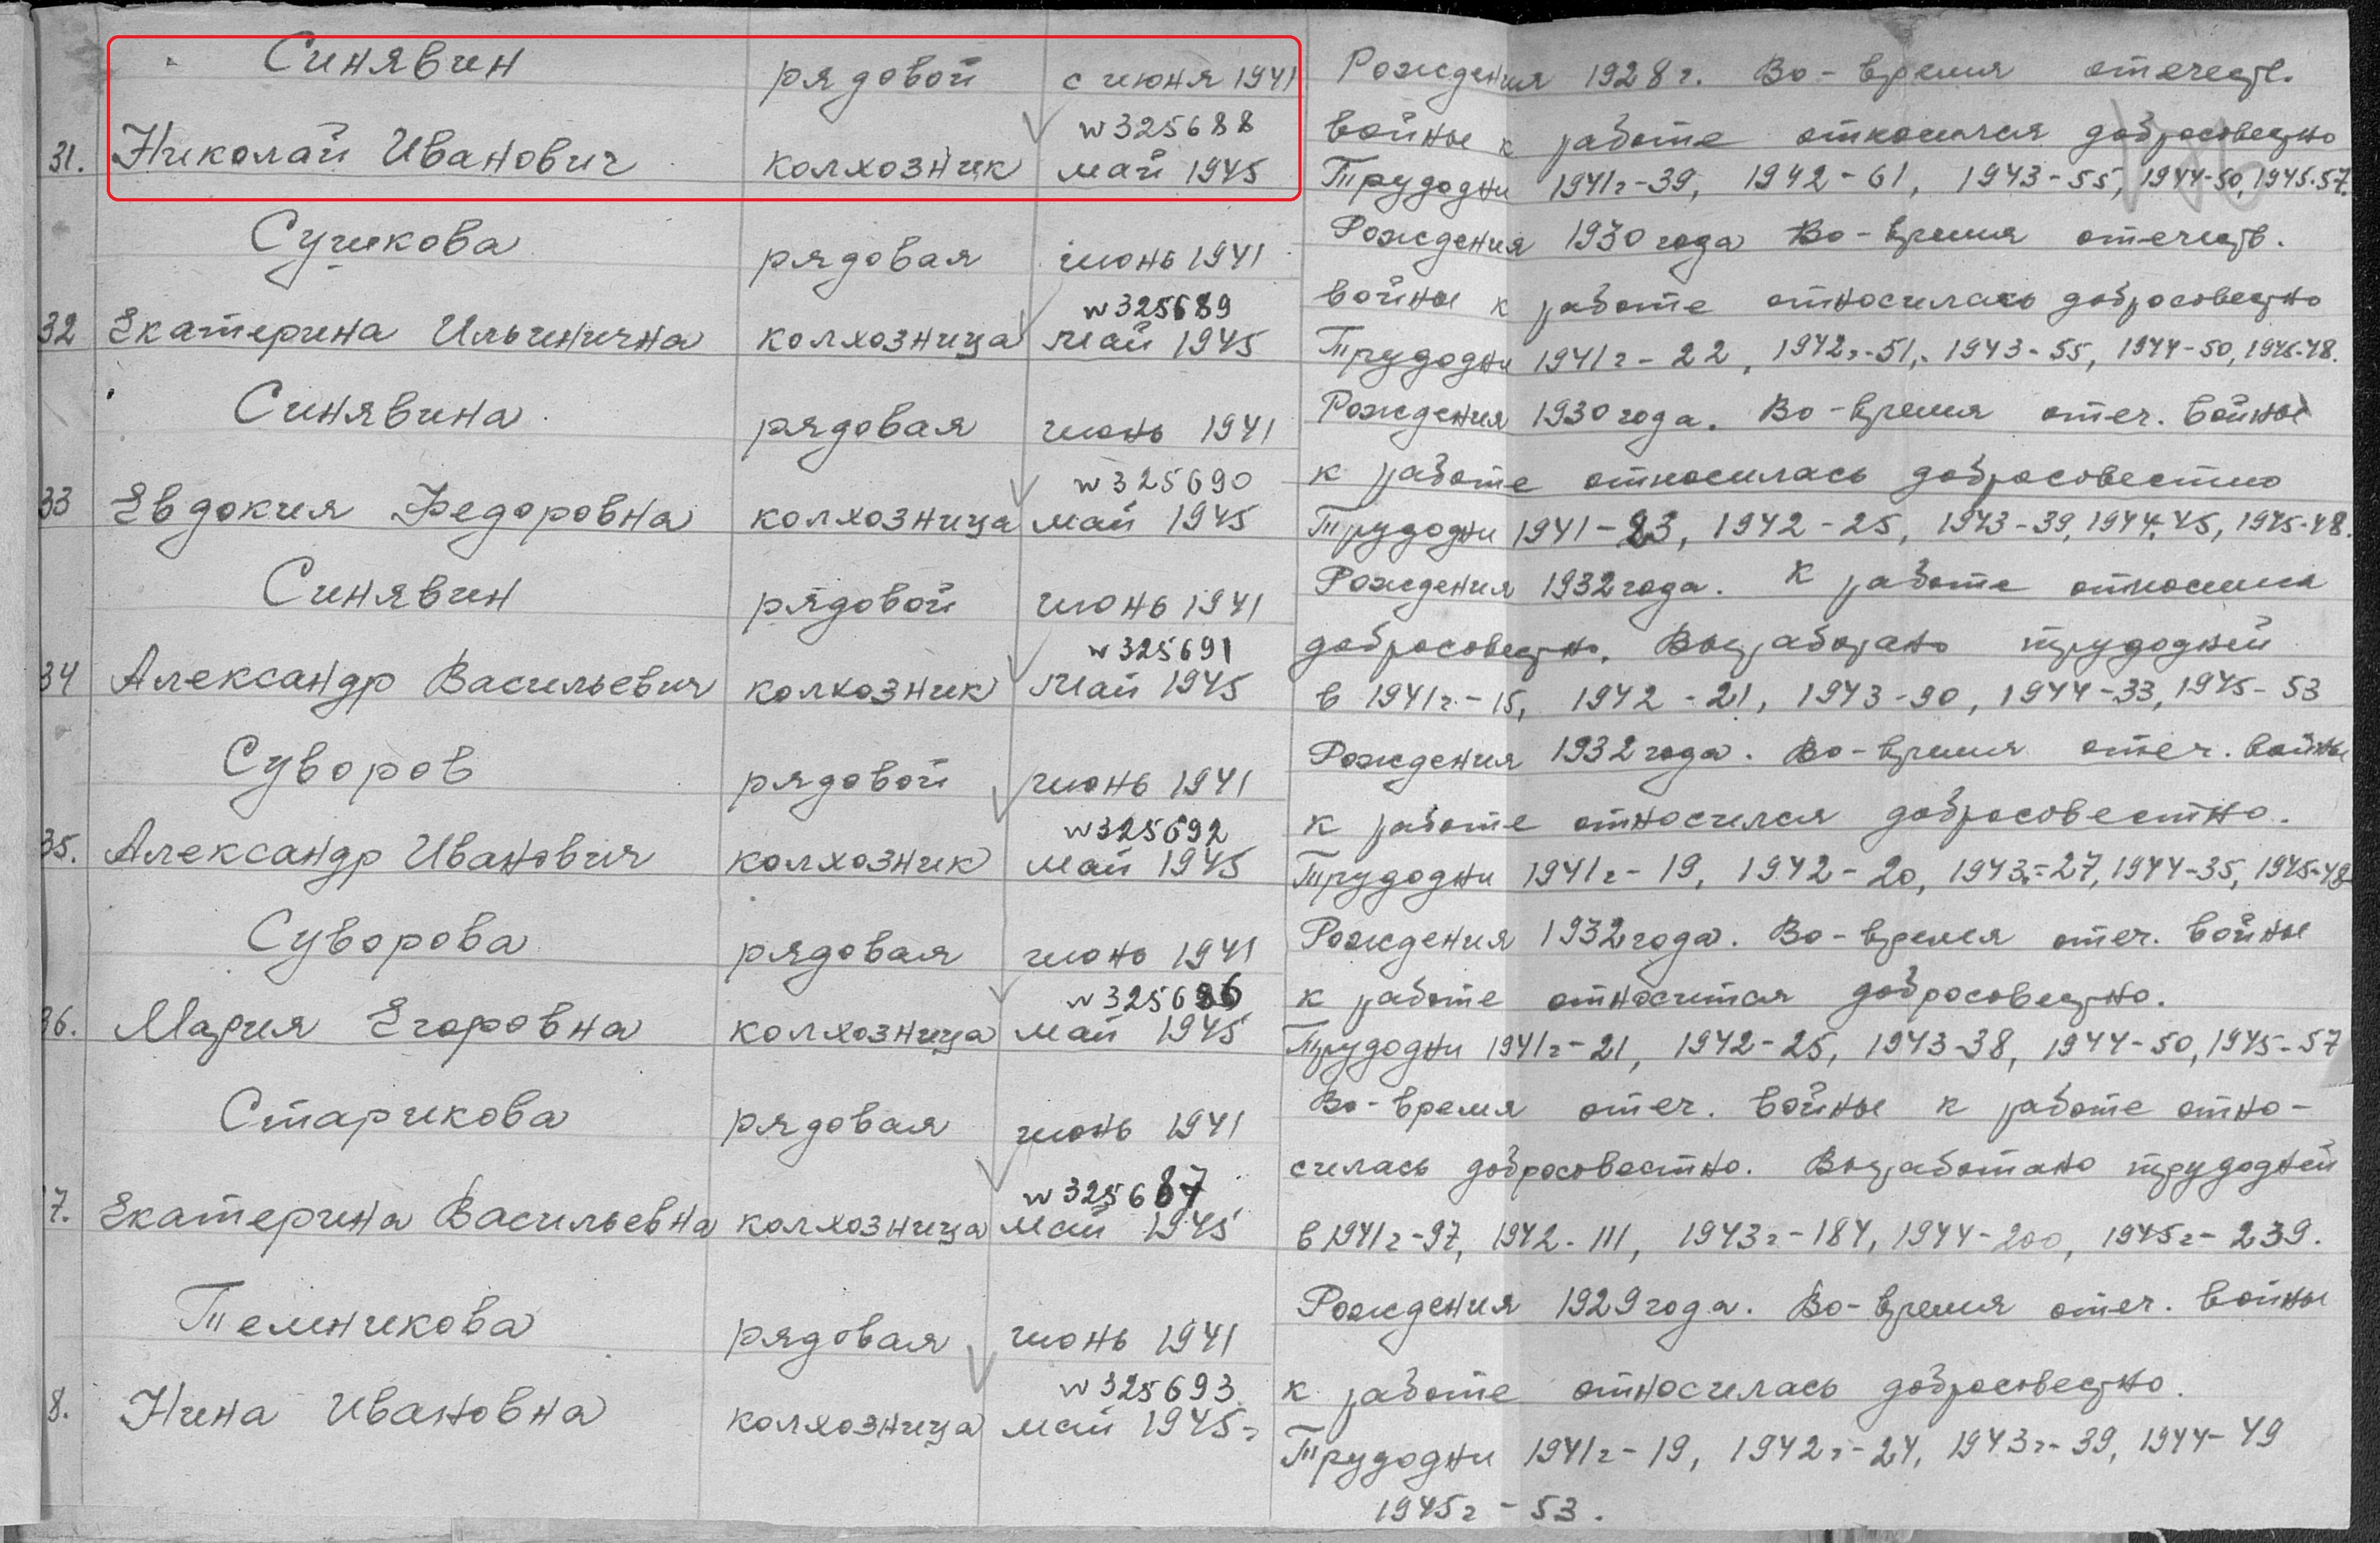 Синявин рядовой с июня 1941 Рождения 1928 г. Во-время отечеств.
w 325688 войны к работе относился добросовестно
31. Николай Иванович колхозник май 1945 Трудодни 1941г-39, 1942-61, 1943-55, 1944-50, 1945-57.
Сушкова рядовая июнь 1941 Рождения 1930 года Во-время отечеств.
w 325689 войны к работе относилась добросовестно
32 Екатерина Ильинична колхозница май 1945 Трудодни 1941г-22, 1942г-51, 1943-55, 1944-50, 1945-48.
Синявина рядовая июнь 1941 Рождения 1930 года. Во-время отеч. войны
w 325690 к работе относилась добросовестно
33 Евдокия Федоровна колхозница май 1945 Трудодни 1941-23, 1942-25, 1943-39, 1944-45, 1945-48.
Синявин рядовой июнь 1941 Рождения 1932 года. К работе относился
w 325691 добросовестно. Выработано трудодней
34 Александр Васильевич колхозник май 1945 в 1941г-15, 1942-21, 1943-90, 1944-33, 1945-53
Суворов рядовой июнь 1941 Рождения 1932 года. Во-время отеч. войны
w 325692 к работе относился добросовестно.
35. Александр Иванович колхозник май 1945 Трудодни 1941г-19, 1942-20, 1943-27, 1944-35, 1945-48
Суворова рядовая июнь 1941 Рождения 1932 года. Во-время отеч. войны
w 325686 к работе относится добросовестно.
36. Мария Егоровна колхозница май 1945 Трудодни 1941г-21, 1942-25, 1943-38, 1944-50, 1945-57
Старикова рядовая июнь 1941 Во-время отеч. войны к работе отно-
w 325687 силась добросовестно. Выработано трудодней
7. Екатерина Васильевна колхозница май 1945 в 1941г-97, 1942-111, 1943г-184, 1944-200, 1945г-239.
Темникова рядовая июнь 1941 Рождения 1929 года. Во-время отеч. войны
w 325693. к работе относилась добросовестно.
8. Нина Ивановна колхозница май 1945г Трудодни 1941г-19, 1942г-24, 1943г-39, 1944-49
1945г-53.